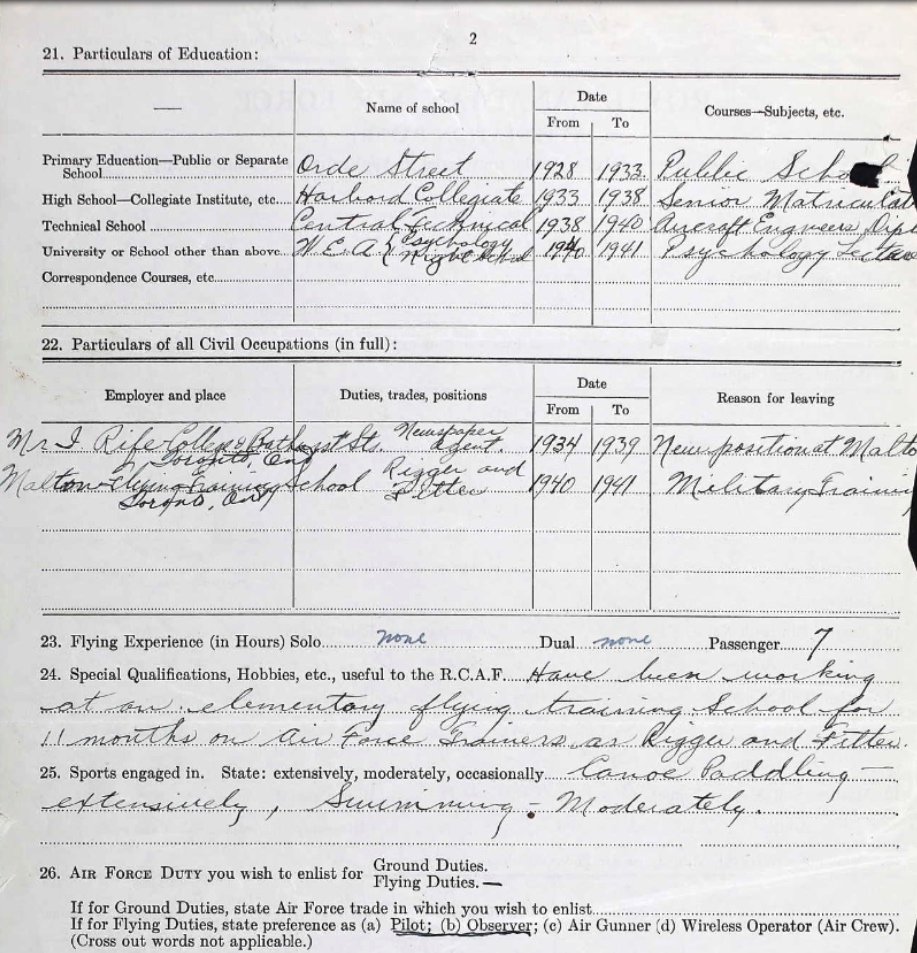 2
21. Particulars of Education:
Name of school
Date
From To
Courses—Subjects, etc.
Primary Education—Public or Separate School Orde Street 1928 1933 Public School
High School—Collegiate Institute, etc. Harbord Collegiate 1933 1938 Senior Matriculat
Technical School Central Technical 1938 1940 Aircraft Engneers Dipl
University or School other than above W.E.A. { Psychology Night School 1940 1941 Psychology Lecture
Correspondence Courses, etc.
22. Particulars of all Civil Occupations (in full):
Employer and place
Duties, trades, positions
Date
From To
Reason for leaving
Mr. I. Rife College & Bathurst St. Toronto, Ont Newspaper Agent. 1934 1939 New position at Malto
Malton Flying Training School Toronto, Ont Rigger and Fitter 1940 1941 Military Training
23. Flying Experience (in Hours) Solo none Dual none Passenger 7
24. Special Qualifications, Hobbies, etc., useful to the R.C.A.F. Have been working
at an elementary flying training School for
11 months on Air Force Trainers as Rigger and Fitter.
25. Sports engaged in. State: extensively, moderately, occasionally Canoe Paddling —
extensively, Swimming - Moderately.
26. AIR FORCE DUTY you wish to enlist for Ground Duties.
Flying Duties. —
If for Ground Duties, state Air Force trade in which you wish to enlist
If for Flying Duties, state preference as (a) Pilot; (b) Observer; (c) Air Gunner (d) Wireless Operator (Air Crew).
(Cross out words not applicable.)